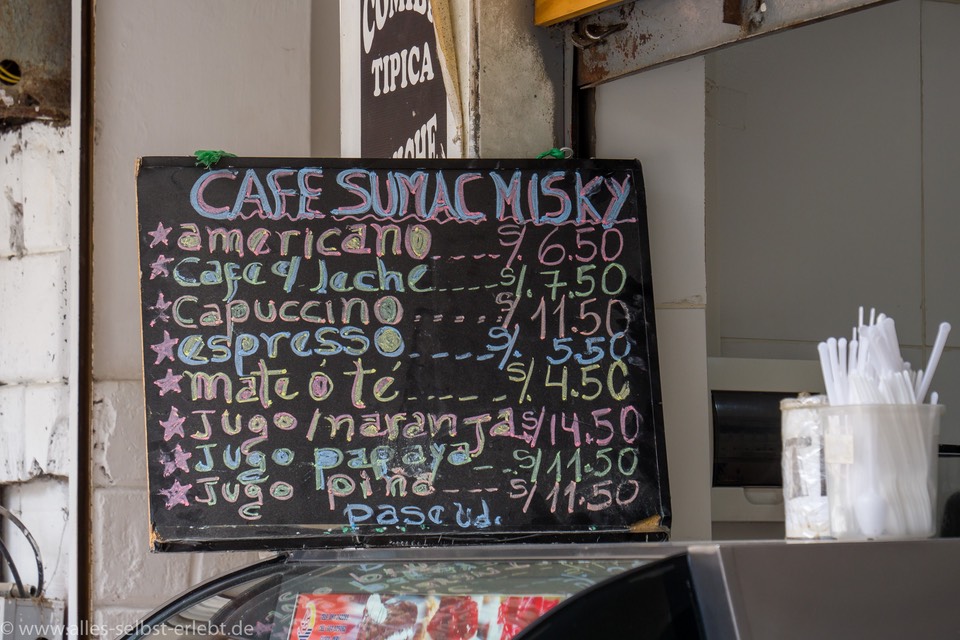 TIPICA
CAFE SUMAC MISKY
americano----S/. 6.50
Cafe c/ leche-----S/. 7.50
Capuccino.....S/ 11.50
espresso-----S/. 5.50
mate ó té------S/ 4.50
Jugo /naranja S/14.50
Jugo papaya--S/11.50
Jugo piña----S/11.50
pase ud.
© www.alles-selbst-erlebt.de